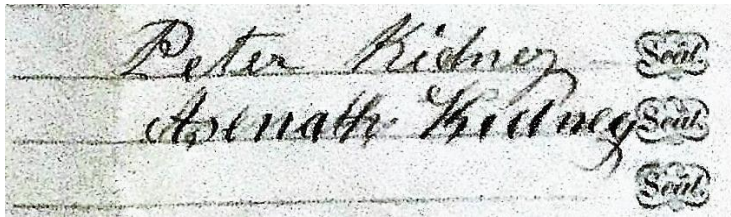 Peter Kidney Seal.
Asenath Kidney Seal.
Seal.